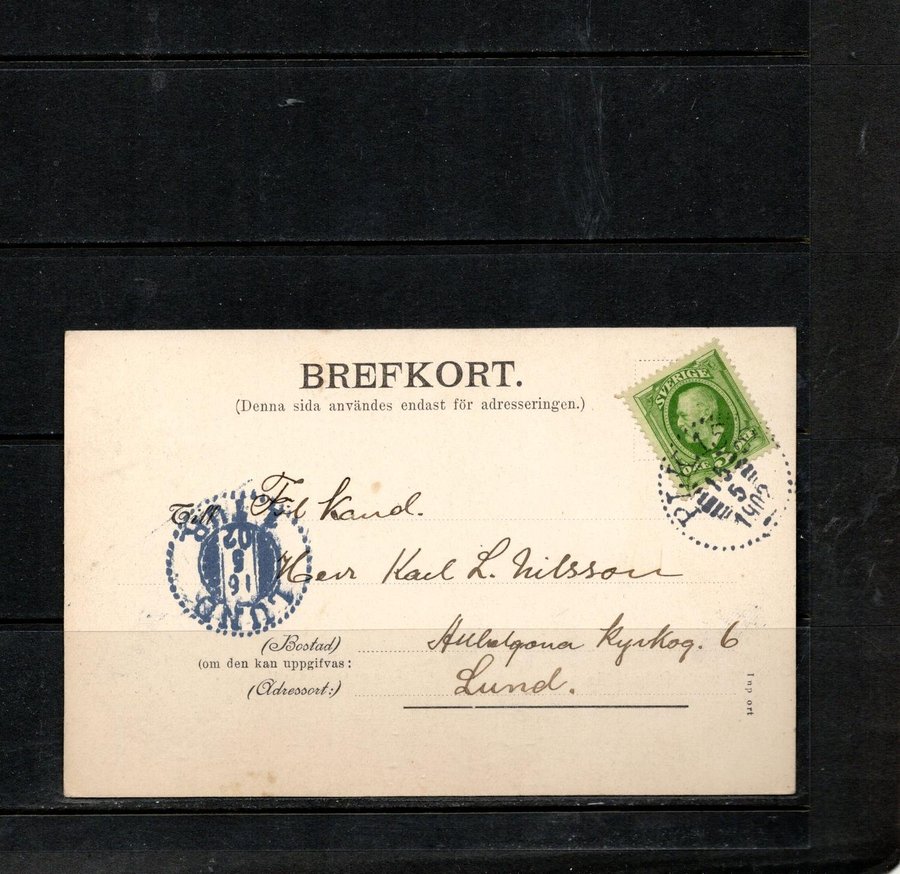 BREFKORT.
(Denna sida användes endast för adresseringen.)
SVERIGE
5 ÖRE
15
5
1902
Till Fil Kand.
LUND
16 5
02
Herr Karl L. Nilsson
(Bostad) kyrkog. 6
(om den kan uppgifvas:
(Adressort:) Lund.
Inp ort